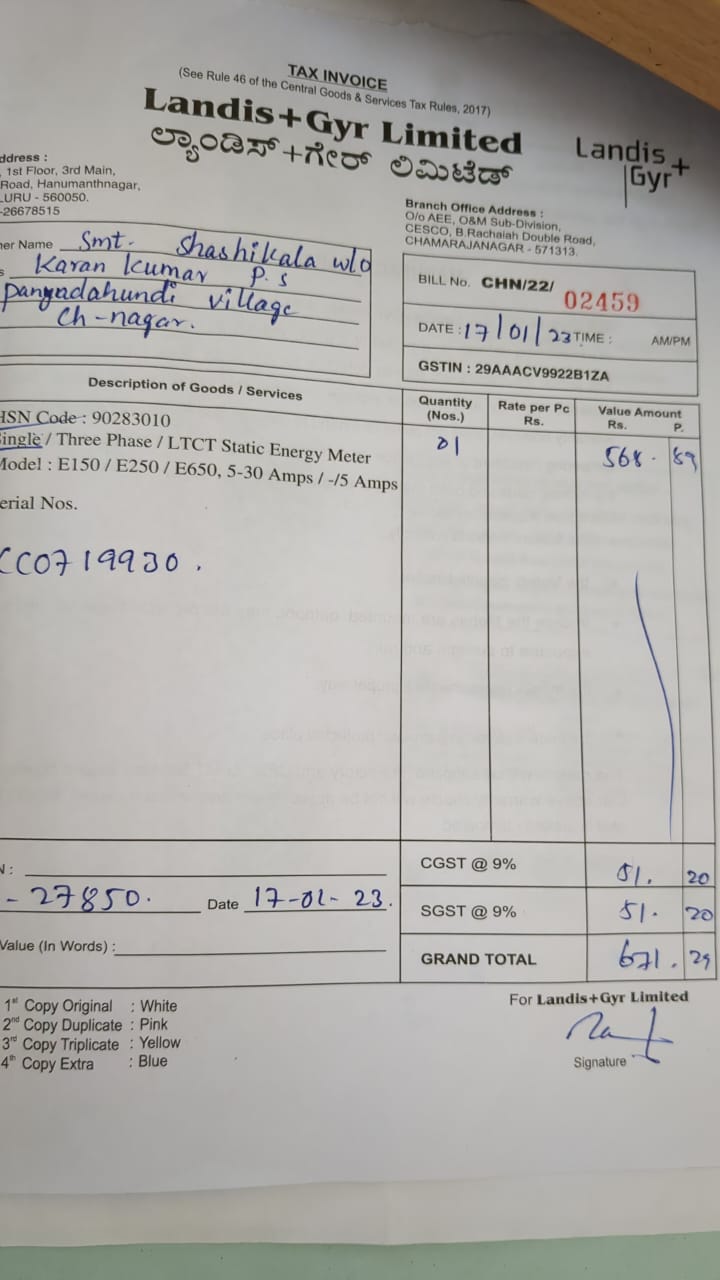 TAX INVOICE
(See Rule 46 of the Central Goods & Services Tax Rules, 2017)
Landis+Gyr Limited
ಲ್ಯಾಂಡಿಸ್+ಗೇರ್ ಲಿಮಿಟೆಡ್
Landis
Gyr+
ddress :
, 1st Floor, 3rd Main,
Road, Hanumanthnagar,
LURU - 560050.
-26678515
Branch Office Address :
O/o AEE, O&M Sub-Division,
CESCO, B.Rachaiah Double Road,
CHAMARAJANAGAR - 571313.
er Name Smt. Shashikala w/o
s Karan kumar P.S
Panyadahundi village
Ch-nagar.
BILL No. CHN/22/ 02459
DATE : 17/01/23 TIME : AM/PM
GSTIN : 29AAACV9922B1ZA
Description of Goods / Services
Quantity (Nos.)
Rate per Pc Rs.
Value Amount Rs. P.
HSN Code : 90283010
Single / Three Phase / LTCT Static Energy Meter 01 568. 89
Model : E150 / E250 / E650, 5-30 Amps / -/5 Amps
erial Nos.
CC0719930.
N :
CGST @ 9% 51. 20
- 27850. Date 17-01-23.
SGST @ 9% 51. 20
Value (In Words) :
GRAND TOTAL 671. 29
1st Copy Original : White
2nd Copy Duplicate : Pink
3rd Copy Triplicate : Yellow
4th Copy Extra : Blue
For Landis+Gyr Limited
Signature